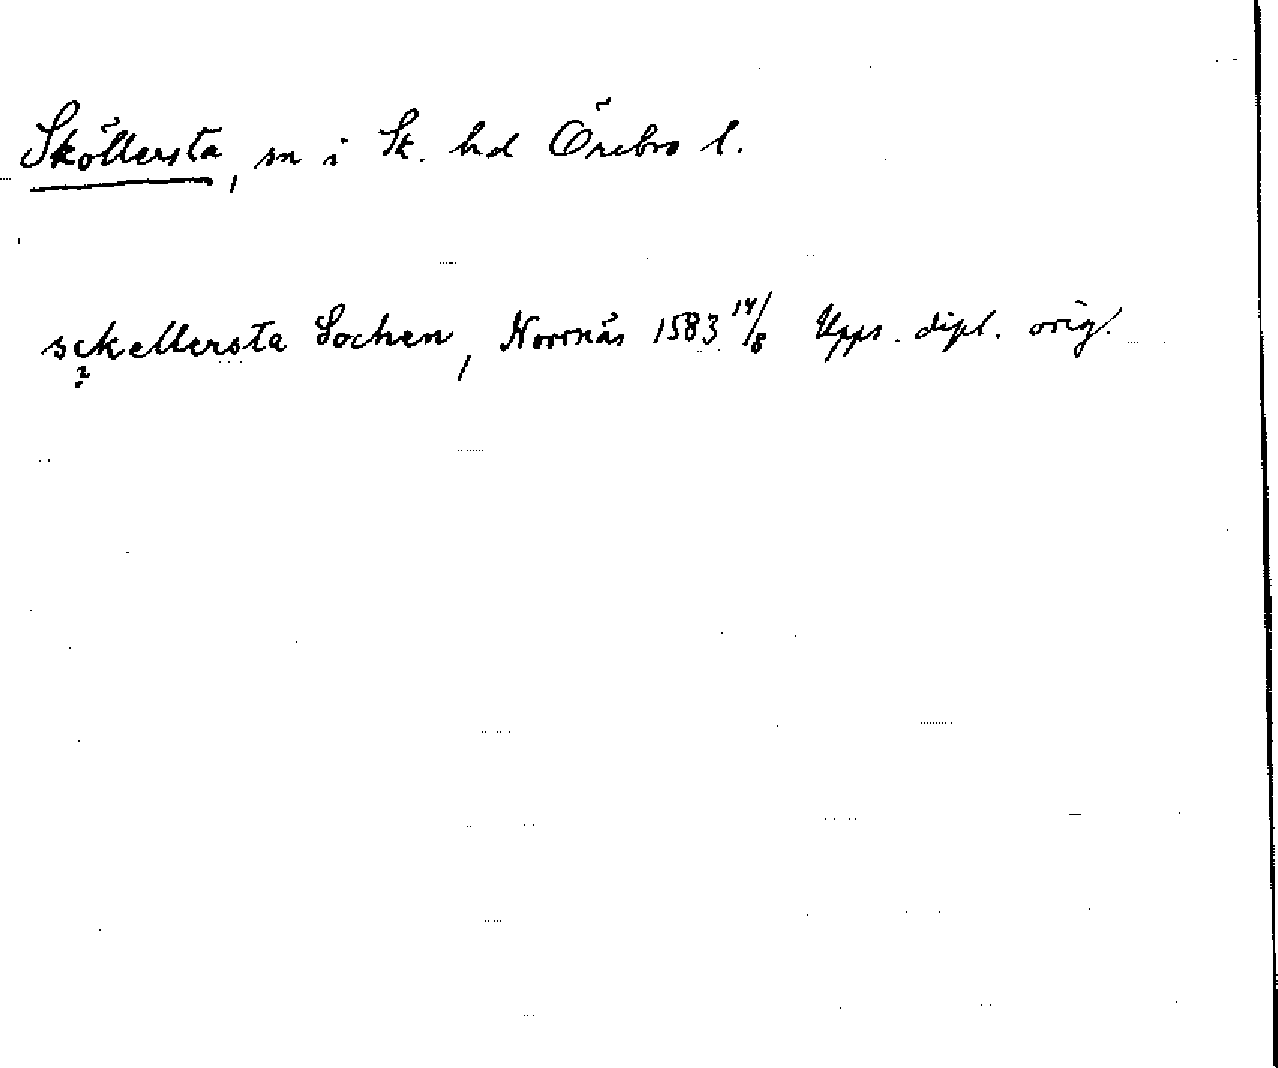 Sköllersta, sn i Sk. hd Örebro l.
sckellersta Sochen, Norrnäs 1583 14/8 Upps. dipl. orig.
?